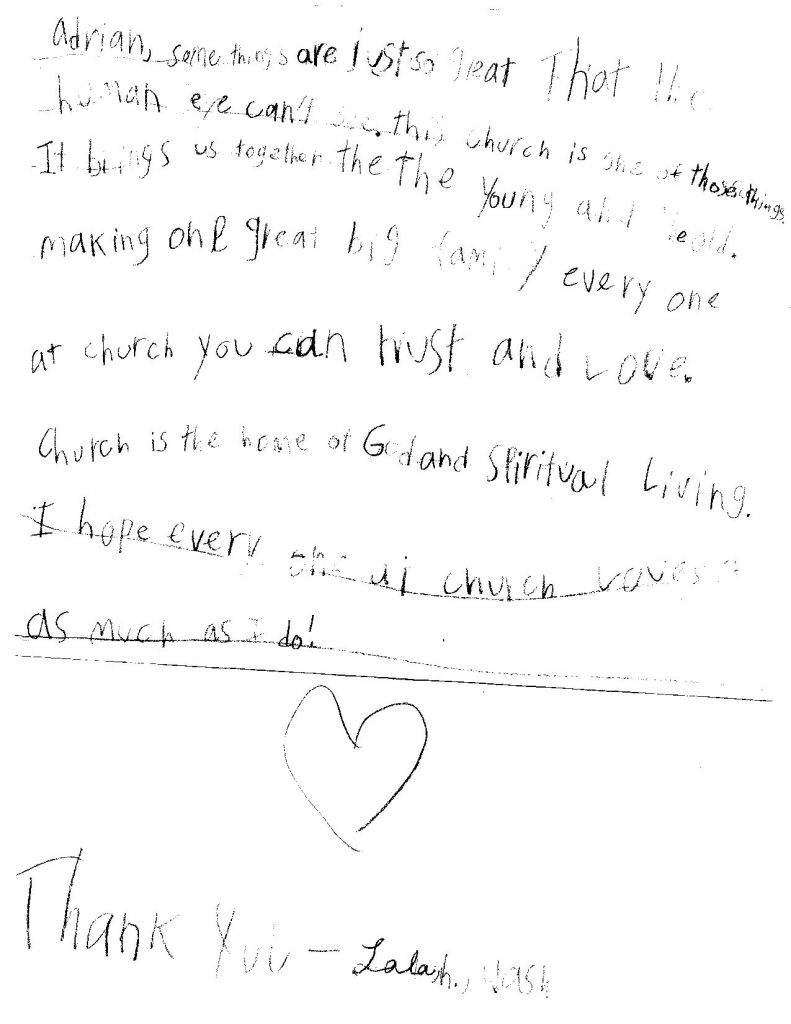 adrian, some things are just so great That the
human eye can't see. this church is one of those things.
It brings us together the the young and the old.
making one great big family every one
at church you can trust and Love.
Church is the home of God and Spiritual Living.
I hope every one at church Loves it
as much as I do!
Thank You -